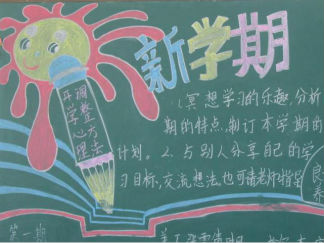 新学期
开学 调整心理方法
1、冥想学习的乐趣,分析
期的特点,制订本学期的
计划。2、与别人分享自己的学
习目标,交流想法,也可请老师指导
良
养
第一期